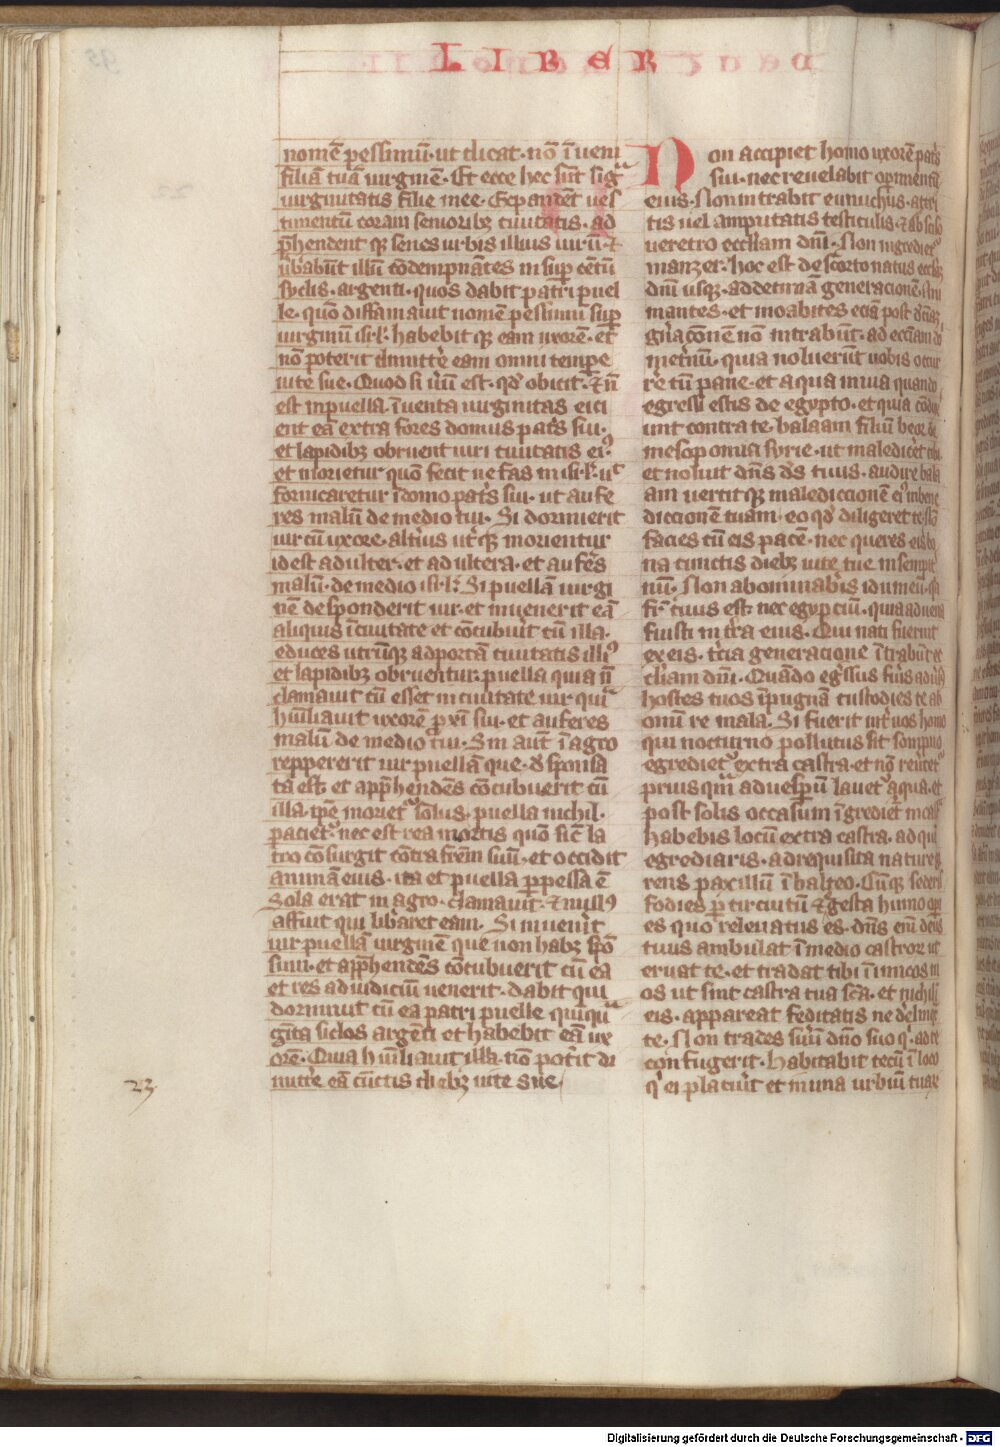 LIBER
nomē pessimū· ut dicat· nō īueni
filiā tuā uirginē· Et ecce hec sūt sigᵃ
uirginitatis filie mee· Expandent ues
timentum coram senioribꝫ ciuitatis· ad
p̄hendent qꝫ senes urbis illius uirū· ⁊
ūbabūt illū cōdempnātes insuꝑ cētū
syclis· argenti· quos dabit patri puel
le· quō diffamauit nomē pessimū suꝑ
uirginū isrl· habebit qꝫ eam uxorē· et
nō poterit dimitte̅ eam omni tempe
uite sue· Quod si ūū est· qd̓ obicit· ⁊ n̄
est inpuella īuenta uirginitas eici
ent eā extra fores domus pat̓s sui·
et lapidibꝫ obruent uiri ciuitatis eiꝰ
et morietur quō fecit nefas in isrl· ut
fornicaretur ī domo pat̓s sui· ut aufe
res malū de medio tui· Si dormierit
uir cū uxore· alt̓ius ut̓qꝫ morientur
id est adulter· et adultera· et aufe̓s
malū· de medio isrl· Si puellā uirgi
nē desponderit uir· et inuenerit eā
aliquis ī ciuitate et cōcubuit̓ cū illa·
educes utrūqꝫ ad portā ciuitatis illiꝰ
et lapidibꝫ obruentur· puella quia n̄
clamauit cū esset in ciuitate uir quiᵃ
hūiliauit uxorē ꝓxi̅ sui· et auferes
malū de medio tui· Sin aut̄ ī agro
reppererit uir puellā que· d̓sponsa
ta est· et app̄hendēs cōcubuerit cū
illa· ip̄e moriet᷑ solus· puella nichil·
paciet᷑· nec est rea mortis quō sic̄ la
tro cōsurgit cōtra frēm suū· et occidit
animā eius· ita et puella ꝑpessa ē
Sola erat in agro· clamauit· ⁊ nullꝰ
affuit qui lib̓aret eam· Si inuen̓it
uir puellā uirginē que non habꝫ spō
sum· et app̄hendēs cōcubuerit cū ea
et res ad iudiciū uenerit· dabit qui
dormiuit cū ea patri puelle quīquᵃ
gīta siclos argēti et habebit eā ux
orē· Quia hūiliauit illā· nō pot̓it di
mitte̅ eā cūctis diebꝫ uite sue
23
Non accipiet homo uxorē pat̓s
sui· nec reuelabit opimentū
eius· Non intrabit eunuchus· attri
tis uel amputatis testiculis· ⁊ absciso
ueretro eccliam dn̄i· Non ingrediet᷑
manzer· hoc est de scorto natus eccliā
dn̄i usqꝫ· ad decimā generacionē· Am
manites· et moabites eciā post decimā
gn̄aconē nō intrabūt· ad eccliam dn̄i
in et̓nū· quia noluerūt uobis occur
re̅ cū pane· et aqua in uia quando
egressi estis de egypto· et quia cōdux̓
unt contra te· balaam filiū beor de
mesopomia syrie· ut maledice̓t tibi·
et noluit dn̄s d̄s tuus· audire bala
am uertit qꝫ malediccionē eiꝰ in bene
diccionē tuam· eo qd̓ diligeret te· Nō
facies cū eis pacē· nec queres eis bo
na cunctis diebꝫ uite tue in sempit̓
nū· Non abominab̓is idumeū· qa
fr̄ tuus est· nec egypciū· quia aduena
fuisti in t̓ra eius· Qui nati fuerint
ex eis· t̓cia generacione ītrabūt ec
cliam dn̄i· Quādo eg̓ssus fu̓is adu̓sꝰ
hostes tuos ī pugnā custodies te ab
omī re mala· Si fuerit int̓ uos homo
qui nocturno pollutus sit sompno
egrediet᷑ extra castra· et nō reu̓tet᷑
priusqᵃm aduesp̓um lauet᷑ aqua· et
post solis occasum īgrediet᷑ in castᵃ
Habebis locū extra castra· ad quē
egrediaris· ad requisita nature ge
rens paxillū ī balteo· Cūqꝫ sederis
fodies ꝑ circuitū ⁊ egesta humo opi
es quo releuatus es· dn̄s eni̅ deus
tuus ambulat ī medio castroꝝ ut
eruat te· et tradat tibi īimicos tu
os ut sint castra tua sc̄a· et nichil ī
eis· appareat feditatis ne derelinq̓
te· Non trades s̓uū dn̄o suo qⁱ ad te
confugerit· Habitabit tecū ī loco
qⁱ ei placuit̓ et in una urbiū tuaꝝ